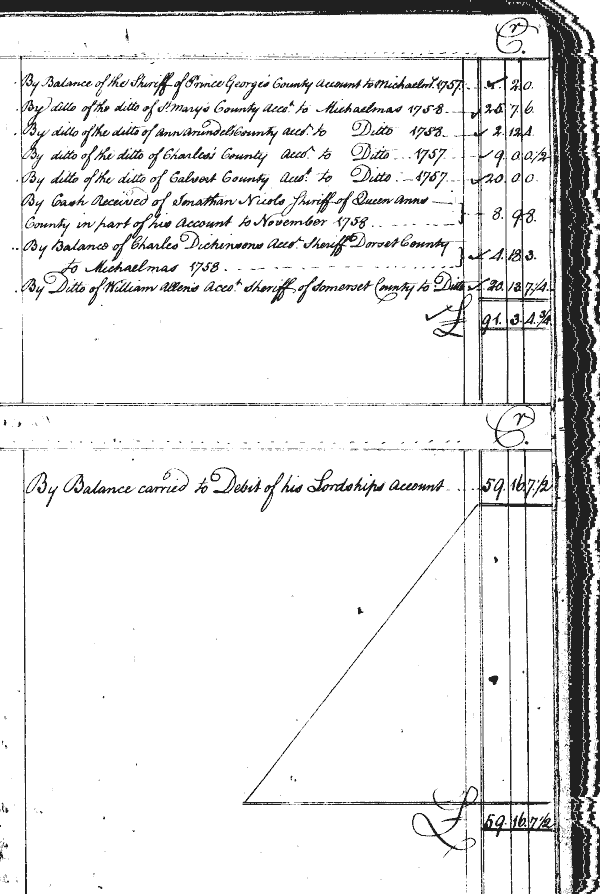 Cr.
By Balance of the Sheriff of Prince George's County Account to Michaelms. 1757 .. 2. 0.
By ditto of the ditto of St Mary's County Acct. to Michaelmas 1758 25. 7. 6.
By ditto of the ditto of Ann Arundel County Acct. to Ditto 1758 2. 12. 4.
By ditto of the ditto of Charles's County Acct. to Ditto 1757 9. 0. 0 1/2
By ditto of the ditto of Calvert County Acct. to Ditto 1757 20. 0. 0.
By Cash Received of Jonathan Nicols Sheriff of Queen Anns
County in part of his Account to November 1758 8. 9. 8.
By Balance of Charles Dickensons Acct. Sheriff Dorset County
to Michaelmas 1758 4. 18. 3.
By Ditto of William Allens Acct. Sheriff of Somerset County to Ditto 20. 13. 7 1/4.
£ 91. 3. 4. 3/4
Cr.
By Balance carried to Debit of his Lordships Account 59. 16. 7 1/2
£ 59. 16. 7 1/2